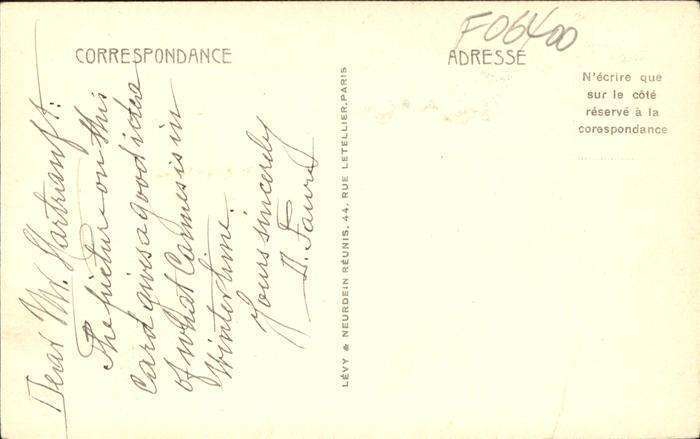 CORRESPONDANCE
ADRESSE
F06400
N'écrire que
sur le côté
réservé à la
corespondance
LÉVY & NEURDEIN RÉUNIS, 44, RUE LETELLIER, PARIS
Dear Mr. Hartranft:
The picture on this
card gives a good idea
of what Cannes is in
Wintertime.
Yours sincerely
D. Faure